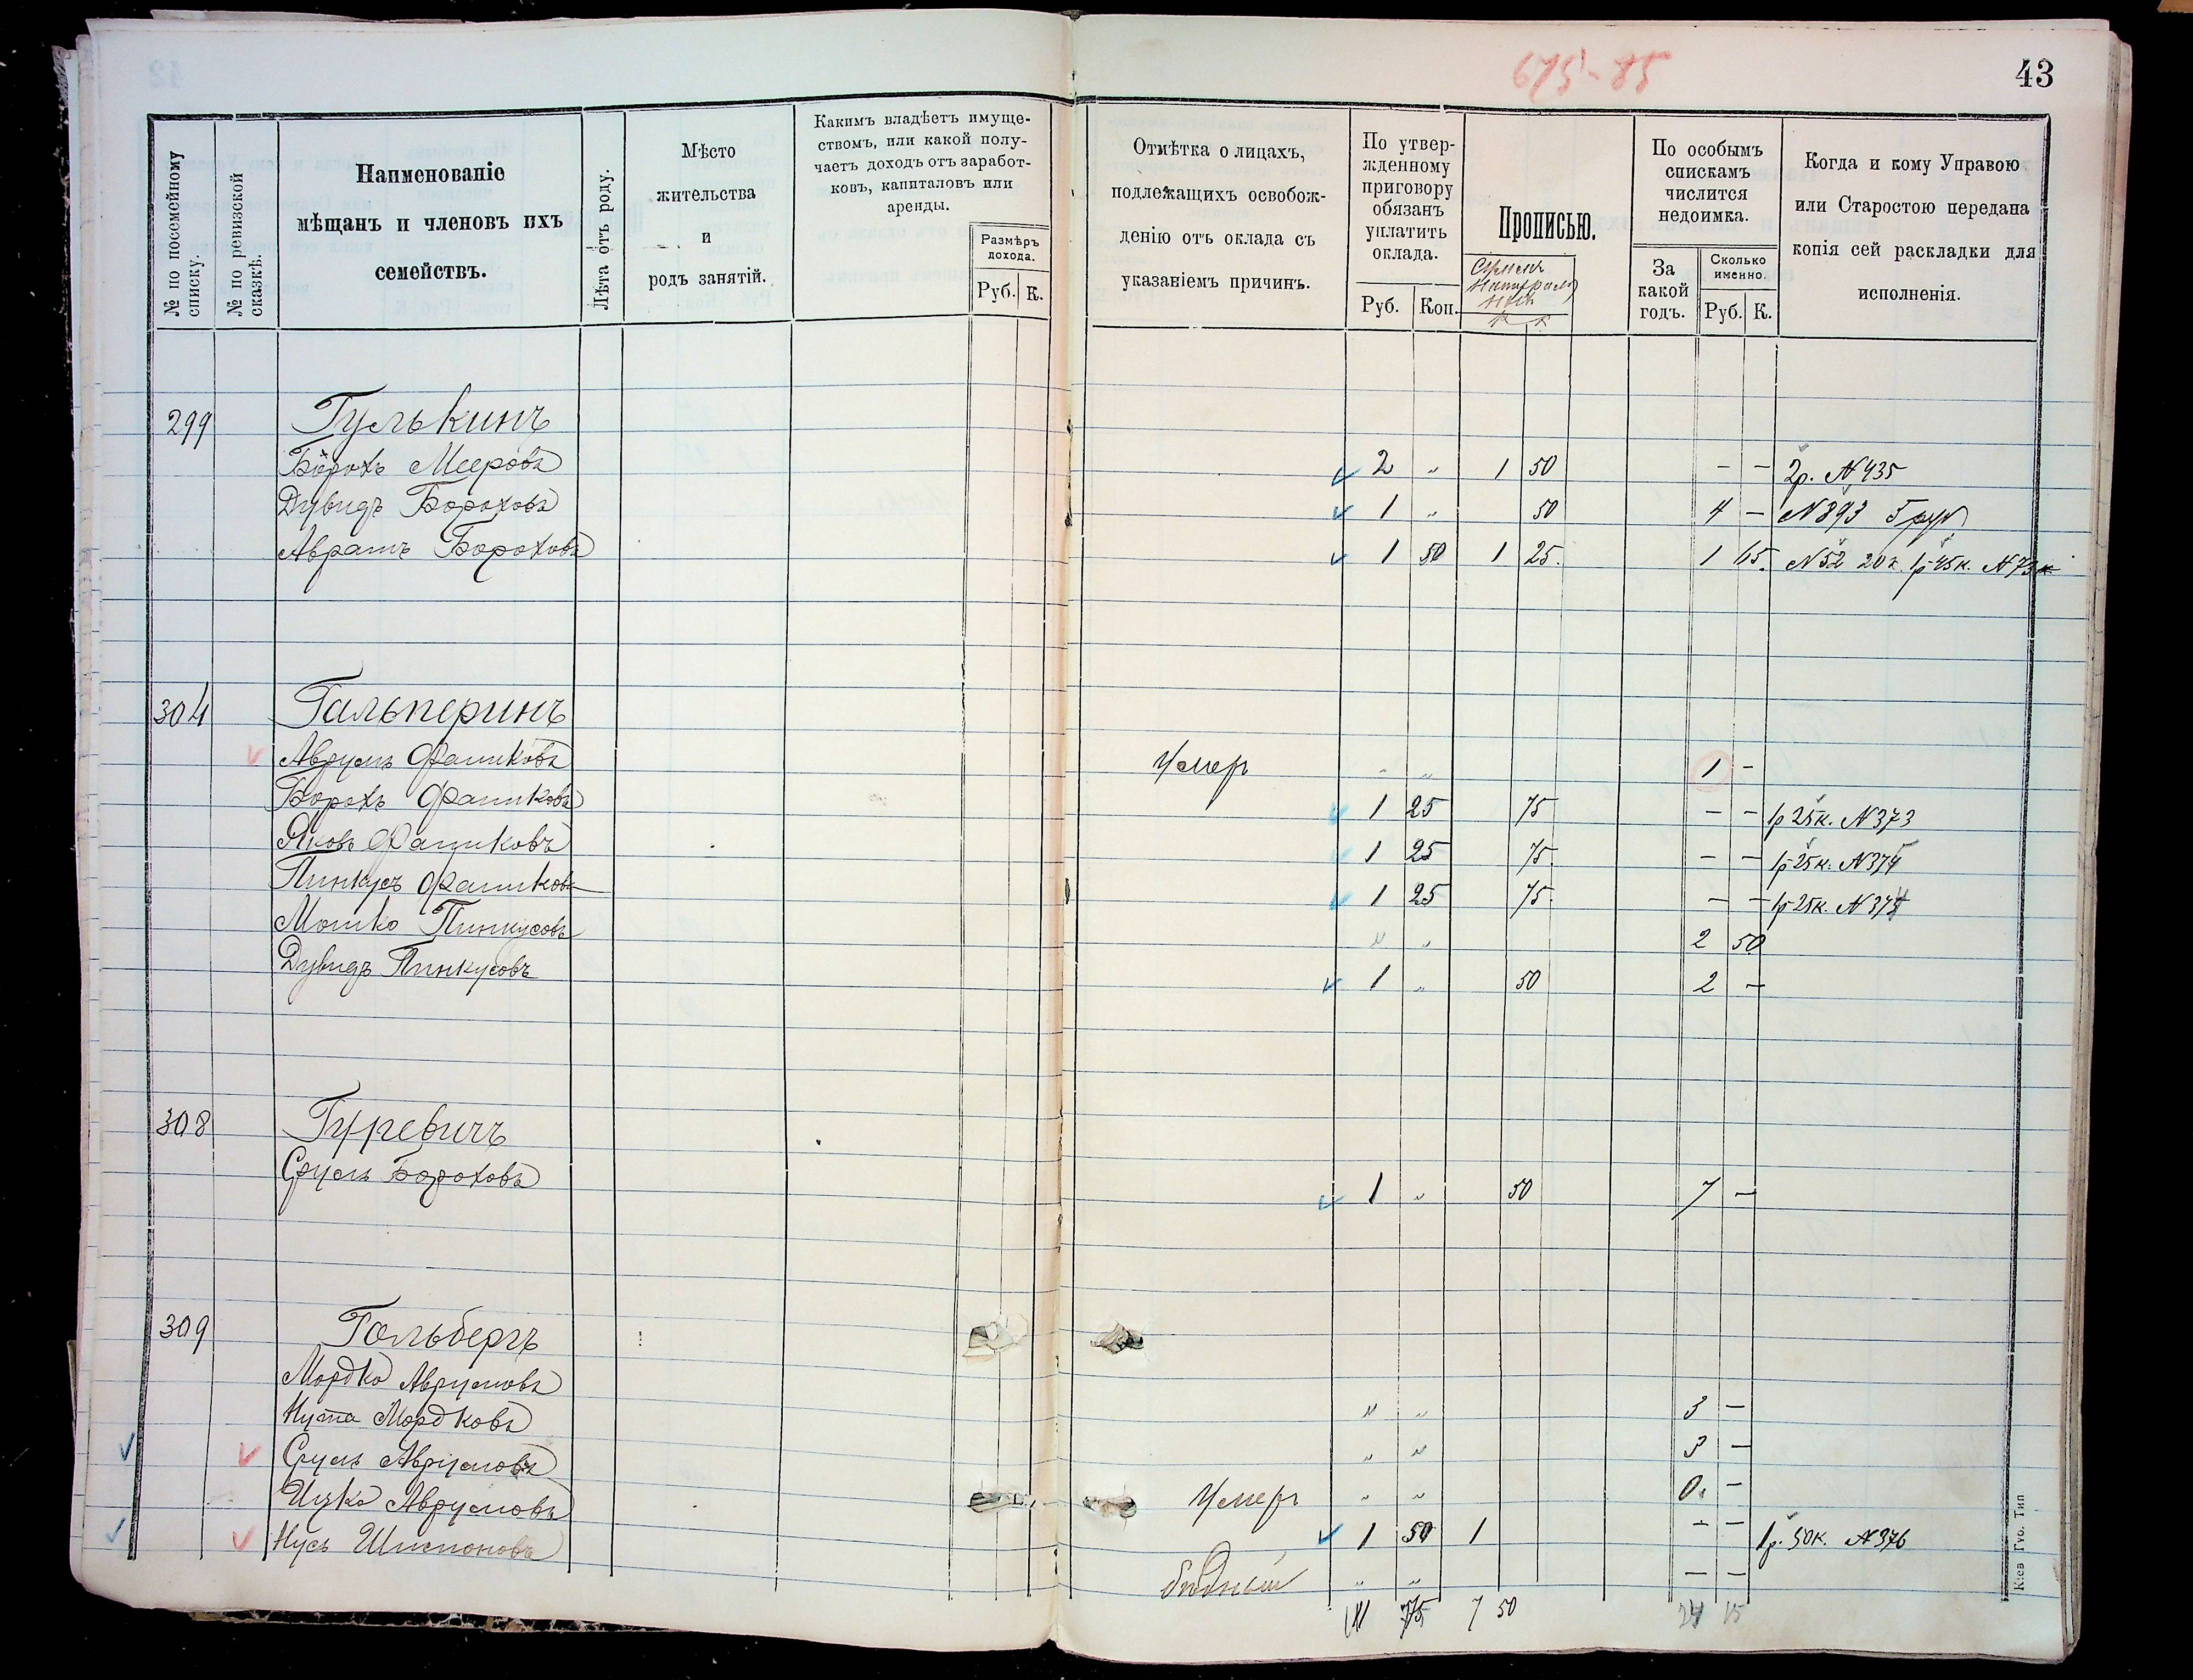 675-85
43
№ по посемейному списку.
№ по ревизской сказкѣ.
Наименованіе
мѣщанъ и членовъ ихъ
семействъ.
Лѣта отъ роду.
Мѣсто
жительства
и
родъ занятій.
Какимъ владѣетъ имуще-
ствомъ, или какой полу-
чаетъ доходъ отъ заработ-
ковъ, капиталовъ или
аренды.
Размѣръ
дохода.
Руб. К.
Отмѣтка о лицахъ,
подлежащихъ освобож-
денію отъ оклада съ
указаніемъ причинъ.
По утвер-
жденному
приговору
обязанъ
уплатить
оклада.
Руб. Коп.
Прописью.
По особымъ
спискамъ
числится
недоимка.
За
какой
годъ.
Сколько
именно.
Руб. К.
Когда и кому Управою
или Старостою передана
копія сей раскладки для
исполненія.
299 Гулькинъ
Борохъ Мееровъ 2 „ 1 50 – – 2р. №435
Дувидъ Бороховъ 1 „ 50 4 – №893
Аврамъ Бороховъ 1 50 1 25. 1 65. №52 20к. 1р 45к.
304 Гальперинъ
Аврумъ Фашковъ Умеръ „ „ 1 –
Борохъ Фашковъ 1 25 75 – – 1р 25к. №373
Яковъ Фашковъ 1 25 75. – – 1р 25к. №374
Пинкусъ Фашковъ 1 25 75. – – 1р 25к.
Мошко Пинкусовъ „ „ 2 50
Дувидъ Пинкусовъ 1 „ 50 2 –
308 Гуревичъ
Сруль Бороховъ 1 „ 50 7 –
309 Гольбергъ
Мордко Аврумовъ „ „ 3 –
Нута Мордковъ „ „ 3 –
Сруль Аврумовъ Умеръ „ „ 0. –
Ицко Аврумовъ 1 50 1 – – 1р. 50к. №376
Нусь Шимоновъ бѣдный „ „ – –
75 7 50 24 15
Кіев Губ. Тип